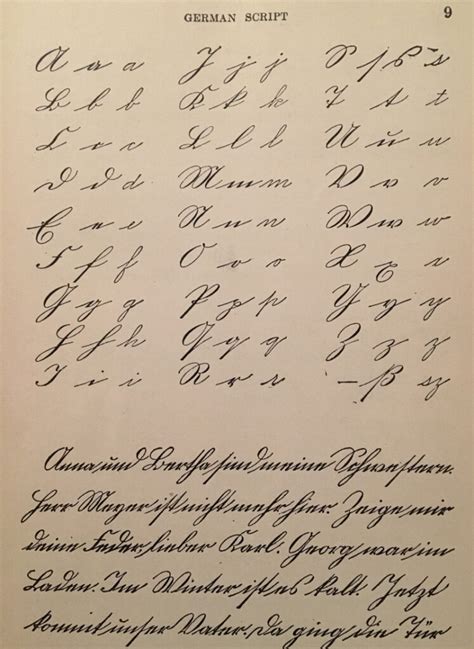 GERMAN SCRIPT 9
A a a J j j S ſ s s
B b b K k k T t t
C c c L l l U u u
D d d M m m V v v
E e e N n n W w w
F f f O o o X x x
G g g P p p Y y y
H h h Q q q Z z z
I i i R r r — ß sz
Anna und Bertha sind meine Schwestern.
Herr Meyer ist nicht mehr hier. Zeige mir
deine Feder, lieber Karl. Georg war im
Laden. Im Winter ist es kalt. Jetzt
kommt unser Vater. Da ging die Tür